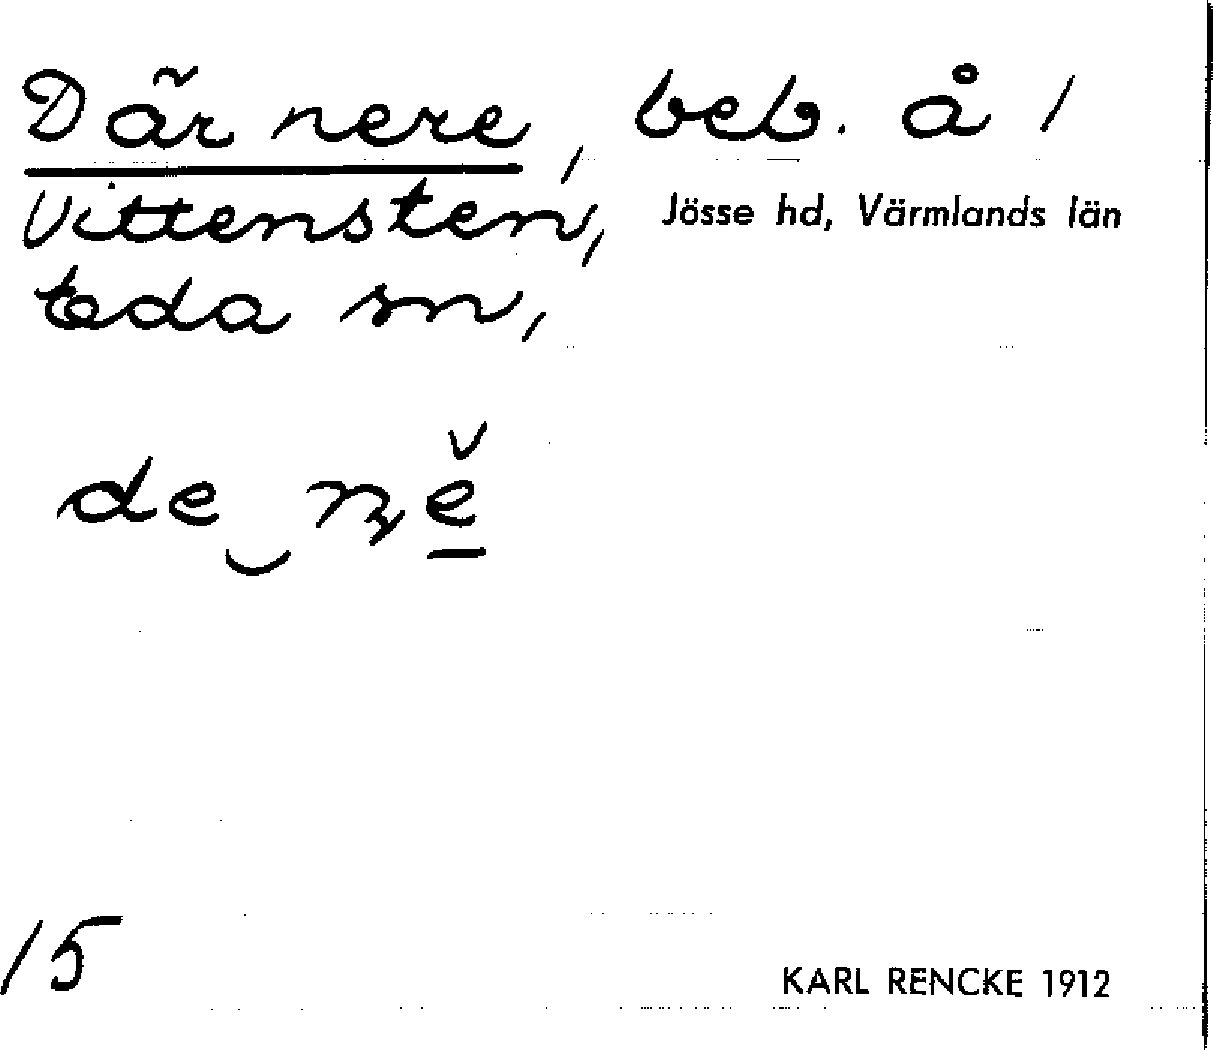 Där nere, beb. å 1
Vittensten, Jösse hd, Värmlands län
Eda sn,
de ně
15
KARL RENCKE 1912